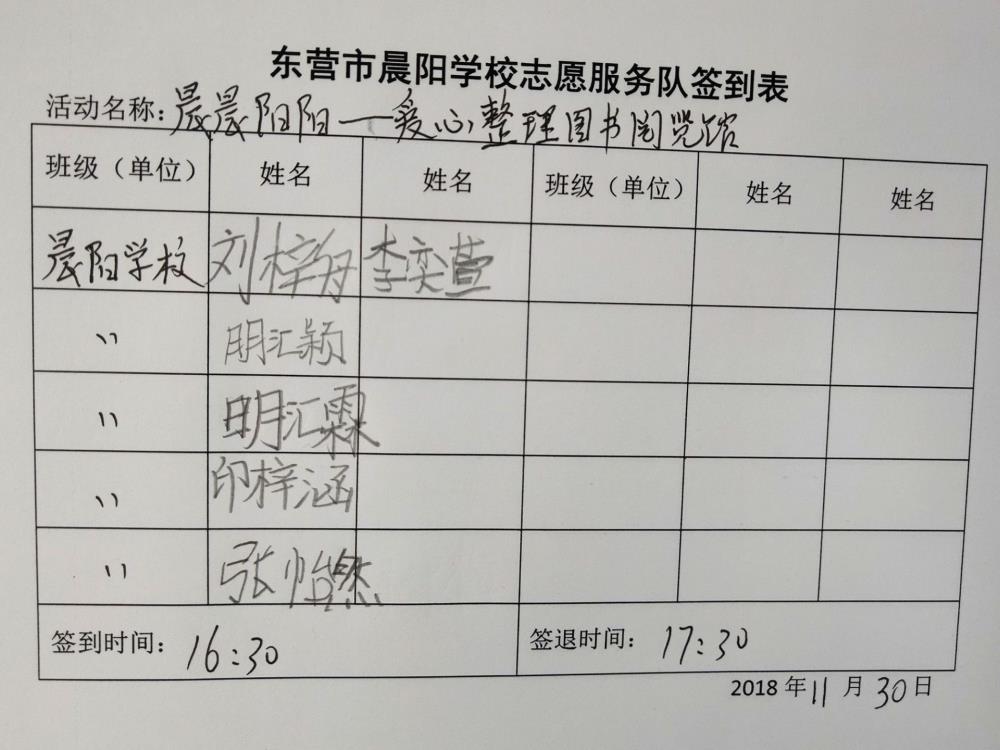 东营市晨阳学校志愿服务队签到表
活动名称：晨晨阳阳——爱心整理图书阅览馆
班级（单位） 姓名 姓名 班级（单位） 姓名 姓名
晨阳学校 刘梓 李奕萱
〃 明汇颖
〃 明汇霖
〃 印梓涵
〃 张怡然
签到时间：16:30 签退时间：17:30
2018年11月30日